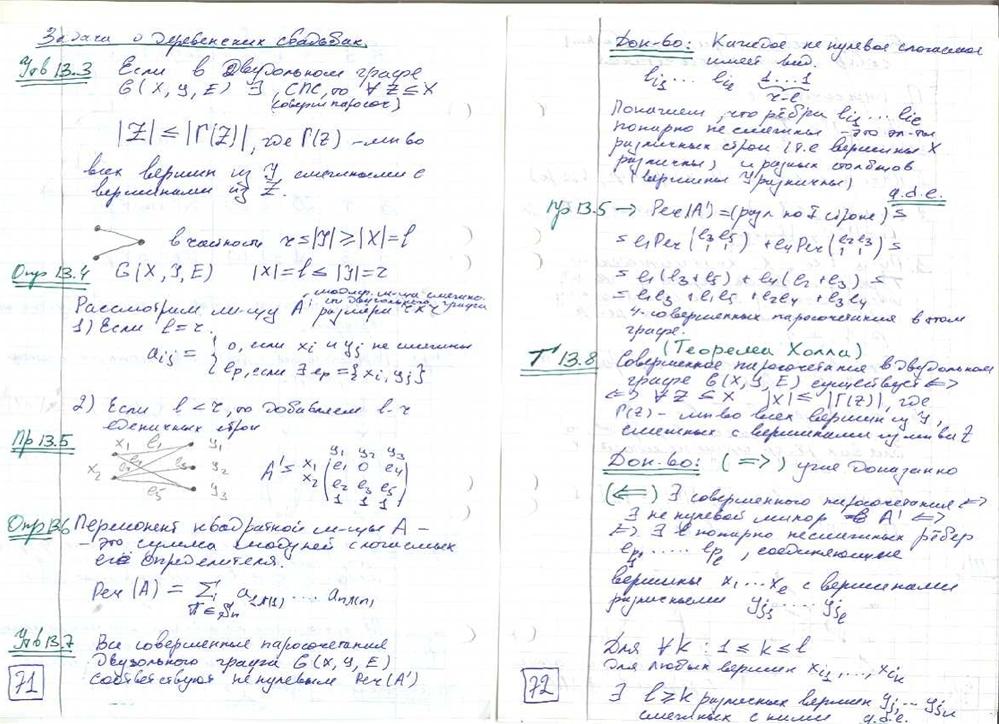 Задача о деревенских свадьбах.
Утв 13.3 Если в двудольном графе
G(X, Y, E) ∃ СПС, то ∀ Z ⊆ X
(соверш парасоч)
|Z| ≤ |Γ(Z)|, где Γ(Z) – мн-во
всех вершин из Y, смежными с
вершинами из Z.
в частности r = |Y| ≥ |X| = l
Опр 13.4 G(X, Y, E) |X| = l ≤ |Y| = r
Рассмотрим м-цу A' размера r × r
1) Если l = r.
a_ij = { 0, если x_i и y_j не смежны
e_p, если ∃ e_p = {x_i, y_j}
2) Если l < r, то добавляем l - r
единичных строк
Пр 13.5 x_1 e_1 y_1
x_2 e_4 e_3 y_2
e_5 y_3
y_1 y_2 y_3
A' = x_1 ( e_1 0 e_4
x_2 e_2 e_3 e_5
1 1 1 )
Опр 13.6 Перманент квадратной м-цы A –
– это сумма модулей слогаемых
его определителя.
Per (A) = Σ a_1π(1) ... a_nπ(n)
π ∈ S_n
Утв 13.7 Все совершенные парасочетания
двудольного графа G(X, Y, E)
соответствуют не нулевым Per(A')
71
Док-во: Каждое не нулевое слогаемое
имеет вид.
e_i1 ... e_il 1...1
r-l
Покажем, что рёбра e_i1 ... e_il
попарно не смежны – это эл-ты
различных строк (т.е вершины X
различны) и разных столбцов
(вершины Y различны)
q.d.e.
Пр 13.5 → Per(A') = (разл по I строке) =
= e_1 Per (e_3 e_5 / 1 1) + e_4 Per (e_2 e_3 / 1 1) =
= e_1(e_3 + e_5) + e_4(e_2 + e_3) =
= e_1e_3 + e_1e_5 + e_2e_4 + e_3e_4
4- совершенных парасочетания в этом
графе.
Т 13.8 (Теорема Холла)
Совершенное парасочетания в двудольном
графе G(X, Y, E) существует <=>
<=> ∀ Z ⊆ X |X| ≤ |Γ(Z)|, где
Γ(Z) – мн-во всех вершин из Y,
смежных с вершинами из мн-ва Z
Док-во: (=>) уже доказанно
(<=) ∃ совершенного парасочетания <=>
∃ не нулевой минор в A' <=>
<=> ∃ l попарно несмежных рёбер
e_p1 ..... e_pl, соединяющие
вершины x_1 ... x_l с вершинами
различными y_j1 .... y_jl
Для ∀ k : 1 ≤ k ≤ l
Для любых вершин x_i1, ..., x_ik
∃ l ≥ k различных вершин y_j1 ... y_jk
смежных с ними q.d.e.
72